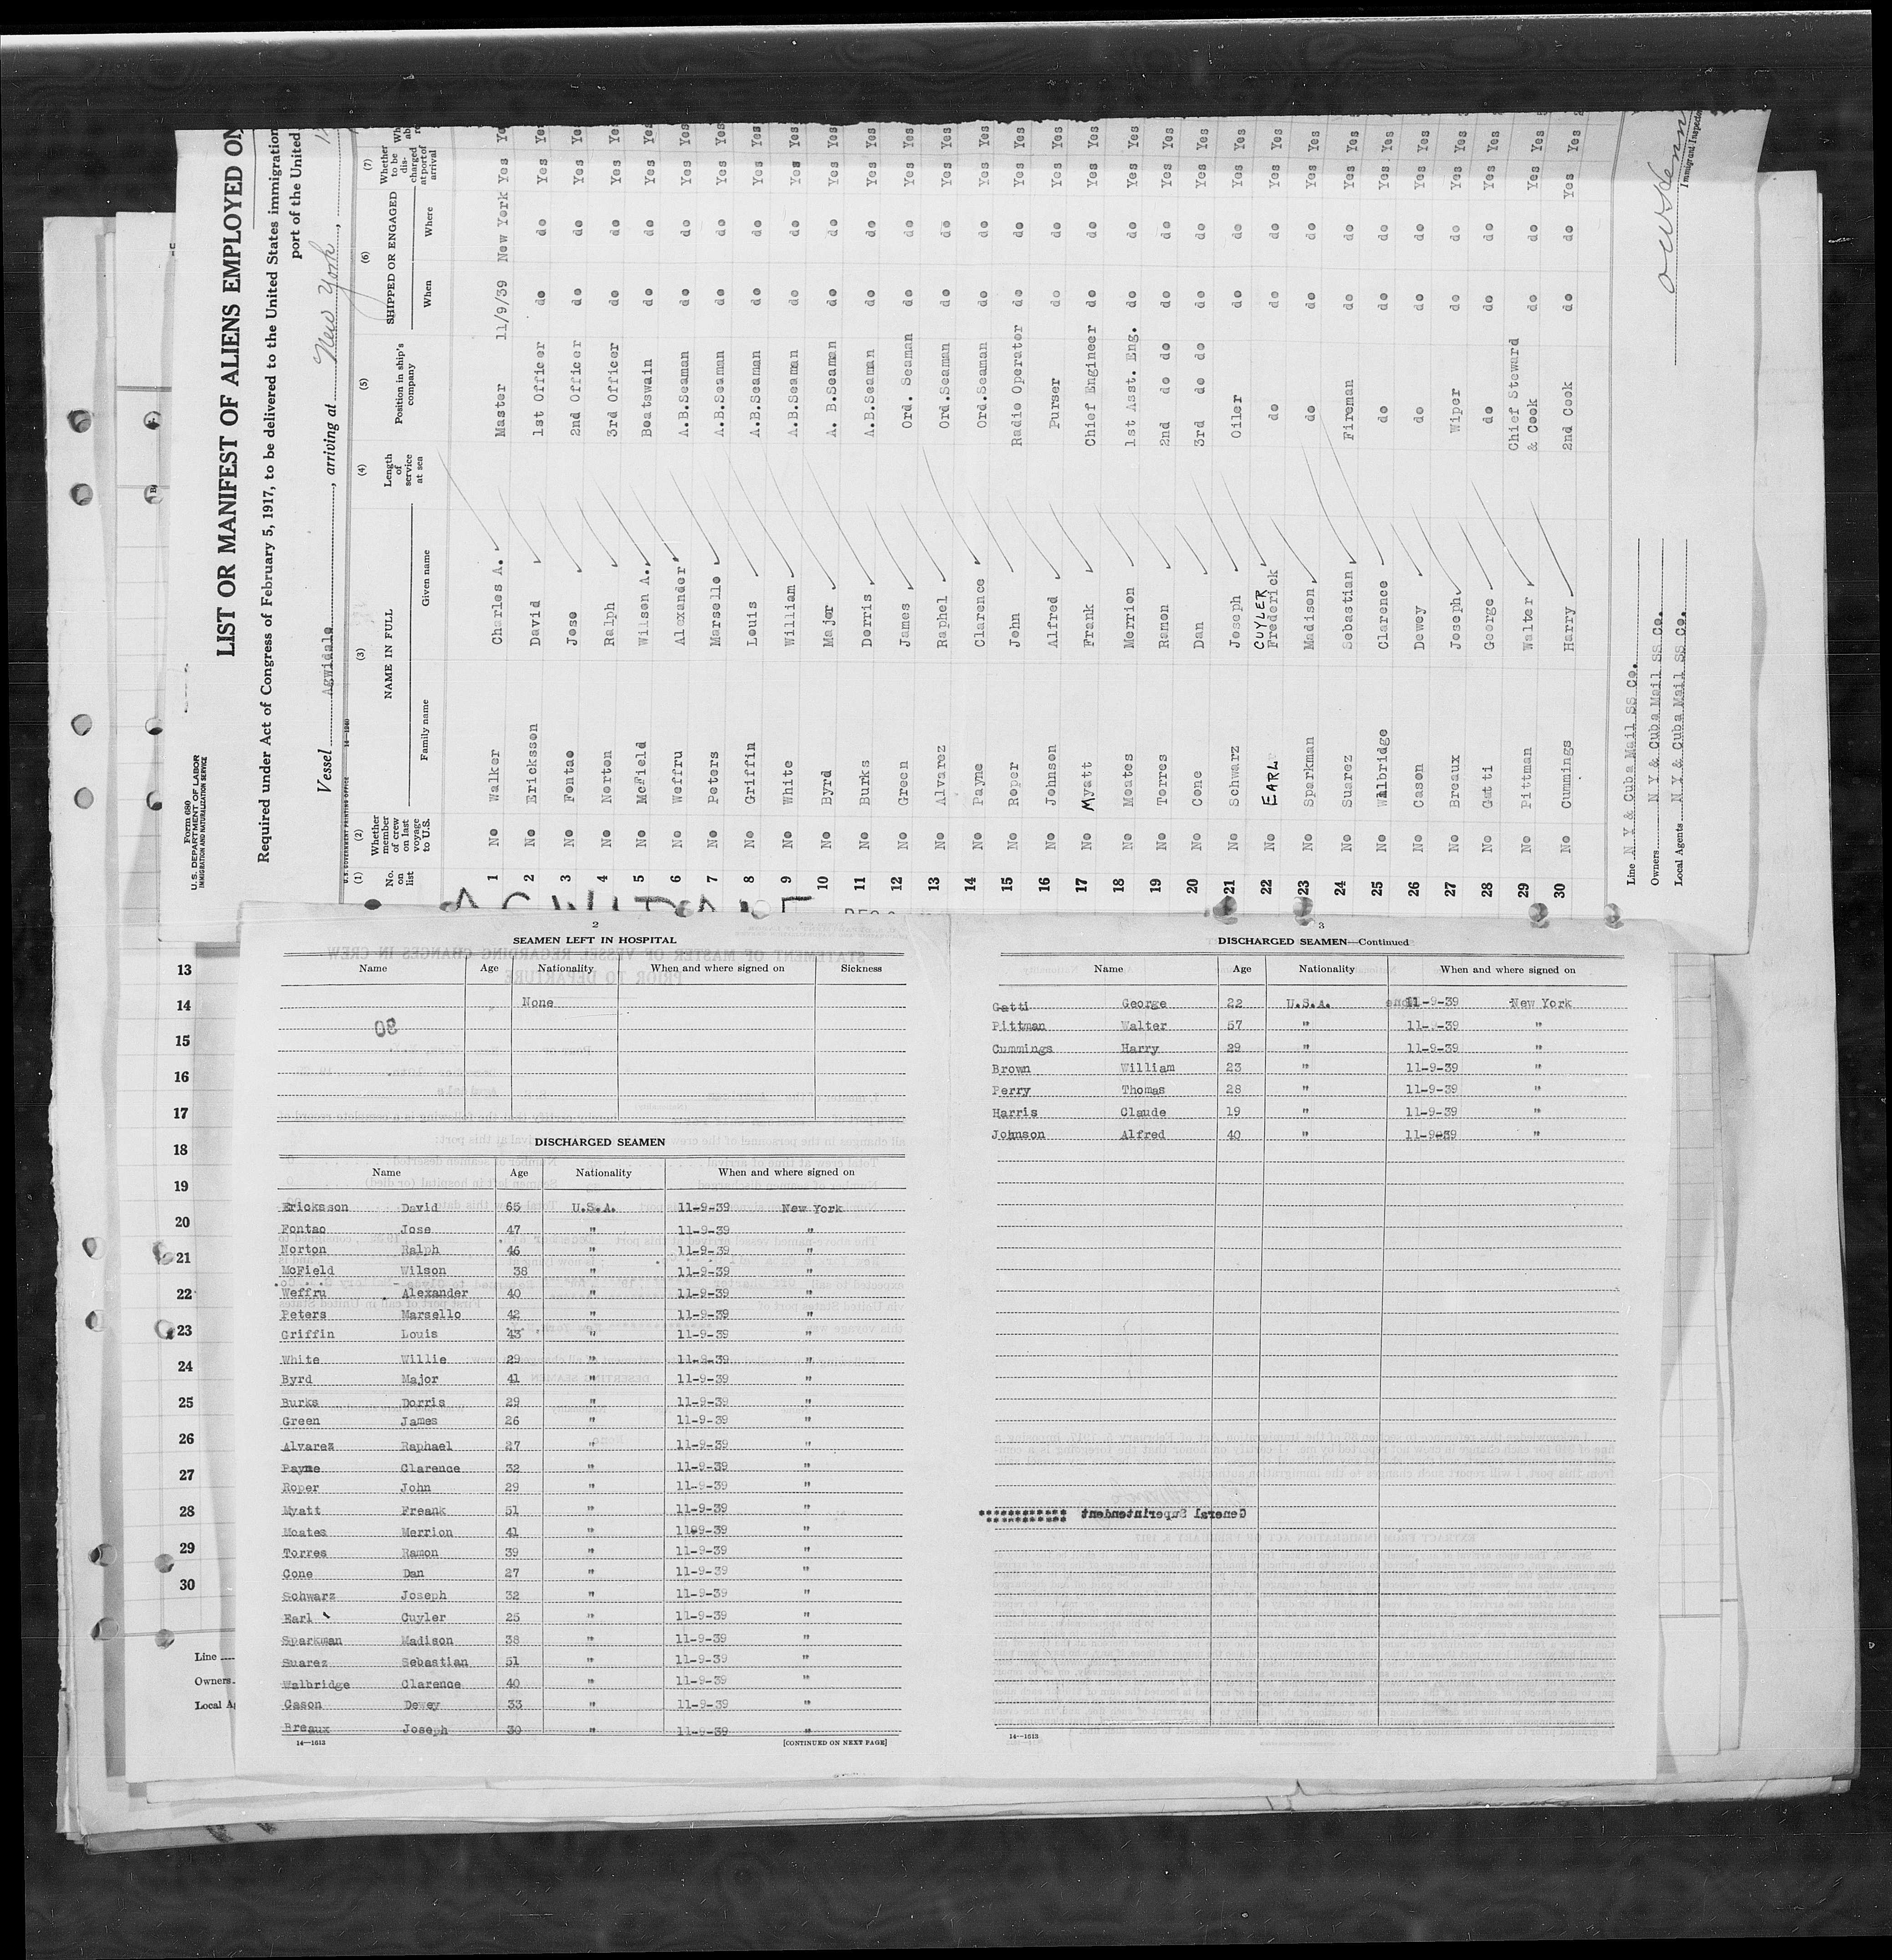 Form 680
U. S. DEPARTMENT OF LABOR
IMMIGRATION AND NATURALIZATION SERVICE
LIST OR MANIFEST OF ALIENS EMPLOYED ON
Required under Act of Congress of February 5, 1917, to be delivered to the United States immigration
port of the United
Vessel Agwidale, arriving at New York,
U.S. GOVERNMENT PRINTING OFFICE
(1) (2) (3) (4) (5) (6) (7)
No. on list Whether member of crew on last voyage to U.S. NAME IN FULL Family name Given name Length of service at sea Position in ship's company SHIPPED OR ENGAGED When Where Whether to be discharged at port of arrival
1 No Walker Charles A. Master 11/9/39 New York Yes Ye
2 No Ericksson David 1st Officer do do Yes Yes
3 No Fontao Jose 2nd Officer do do Yes Yes
4 No Norton Ralph 3rd Officer do do Yes Yes
5 No McField Wilson A. Boatswain do do Yes Yes
6 No Weffru Alexander A.B.Seaman do do Yes Yes
7 No Peters Marsello A.B.Seaman do do Yes Yes
8 No Griffin Louis A.B.Seaman do do Yes Yes
9 No White William A.B.Seaman do do Yes Yes
10 No Byrd Major A. B.Seaman do do Yes Yes
11 No Burks Dorris A.B.Seaman do do Yes Yes
12 No Green James Ord. Seaman do do Yes Yes
13 No Alvarez Raphel Ord.Seaman do do Yes Yes
14 No Payne Clarence Ord.Seaman do do Yes Yes
15 No Roper John Radio Operator do do Yes Yes
16 No Johnson Alfred Purser do do Yes Yes
17 No Myatt Frank Chief Engineer do do Yes Yes
18 No Moates Merrion 1st Asst. Eng. do do Yes Yes
19 No Torres Ramon 2nd do do do do Yes Yes
20 No Cone Dan 3rd do do do do Yes Yes
21 No Schwarz Joseph Oiler do do Yes Yes
22 No EARL CUYLER Frederick do do do Yes Yes
23 No Sparkman Madison do do do Yes Yes
24 No Suarez Sebastian Fireman do do Yes Yes
25 No Walbridge Clarence do do do Yes Yes
26 No Cason Dewey do do do Yes Yes
27 No Breaux Joseph Wiper do do Yes Yes
28 No Gatti George do do do Yes Yes
29 No Pittman Walter Chief Steward & Cook do do Yes Yes
30 No Cummings Harry 2nd Cook do do Yes Yes
Line N Y & Cuba Mail SS Co.
Owners N Y & Cuba Mail SS Co.
Local Agents N Y & Cuba Mail SS Co.
Immigrant Inspector
13
14
15
16
17
18
19
20
21
22
23
24
25
26
27
28
29
30
Line
Owners
Local A
2
SEAMEN LEFT IN HOSPITAL
Name Age Nationality When and where signed on Sickness
None
DISCHARGED SEAMEN
Name Age Nationality When and where signed on
Ericksson David 65 U.S.A. 11-9-39 New York
Fontao Jose 47 " 11-9-39 "
Norton Ralph 46 " 11-9-39 "
McField Wilson 38 " 11-9-39 "
Weffru Alexander 40 " 11-9-39 "
Peters Marsello 42 " 11-9-39 "
Griffin Louis 43 " 11-9-39 "
White Willie 29 " 11-9-39 "
Byrd Major 41 " 11-9-39 "
Burks Dorris 29 " 11-9-39 "
Green James 26 " 11-9-39 "
Alvarez Raphael 27 " 11-9-39 "
Payne Clarence 32 " 11-9-39 "
Roper John 29 " 11-9-39 "
Myatt Freank 51 " 11-9-39 "
Moates Merrion 41 " 1199-39 "
Torres Ramon 39 " 11-9-39 "
Cone Dan 27 " 11-9-39 "
Schwarz Joseph 32 " 11-9-39 "
Earl Cuyler 25 " 11-9-39 "
Sparkman Madison 38 " 11-9-39 "
Suarez Sebastian 51 " 11-9-39 "
Walbridge Clarence 40 " 11-9-39 "
Cason Dewey 33 " 11-9-39 "
Breaux Joseph 30 " 11-9-39 "
14—1613 [CONTINUED ON NEXT PAGE]
3
DISCHARGED SEAMEN—Continued
Name Age Nationality When and where signed on
Gatti George 22 U.S.A. 11-9-39 New York
Pittman Walter 57 " 11-9-39 "
Cummings Harry 29 " 11-9-39 "
Brown William 23 " 11-9-39 "
Perry Thomas 28 " 11-9-39 "
Harris Claude 19 " 11-9-39 "
Johnson Alfred 40 " 11-9-39 "
General Superintendent
14—1613